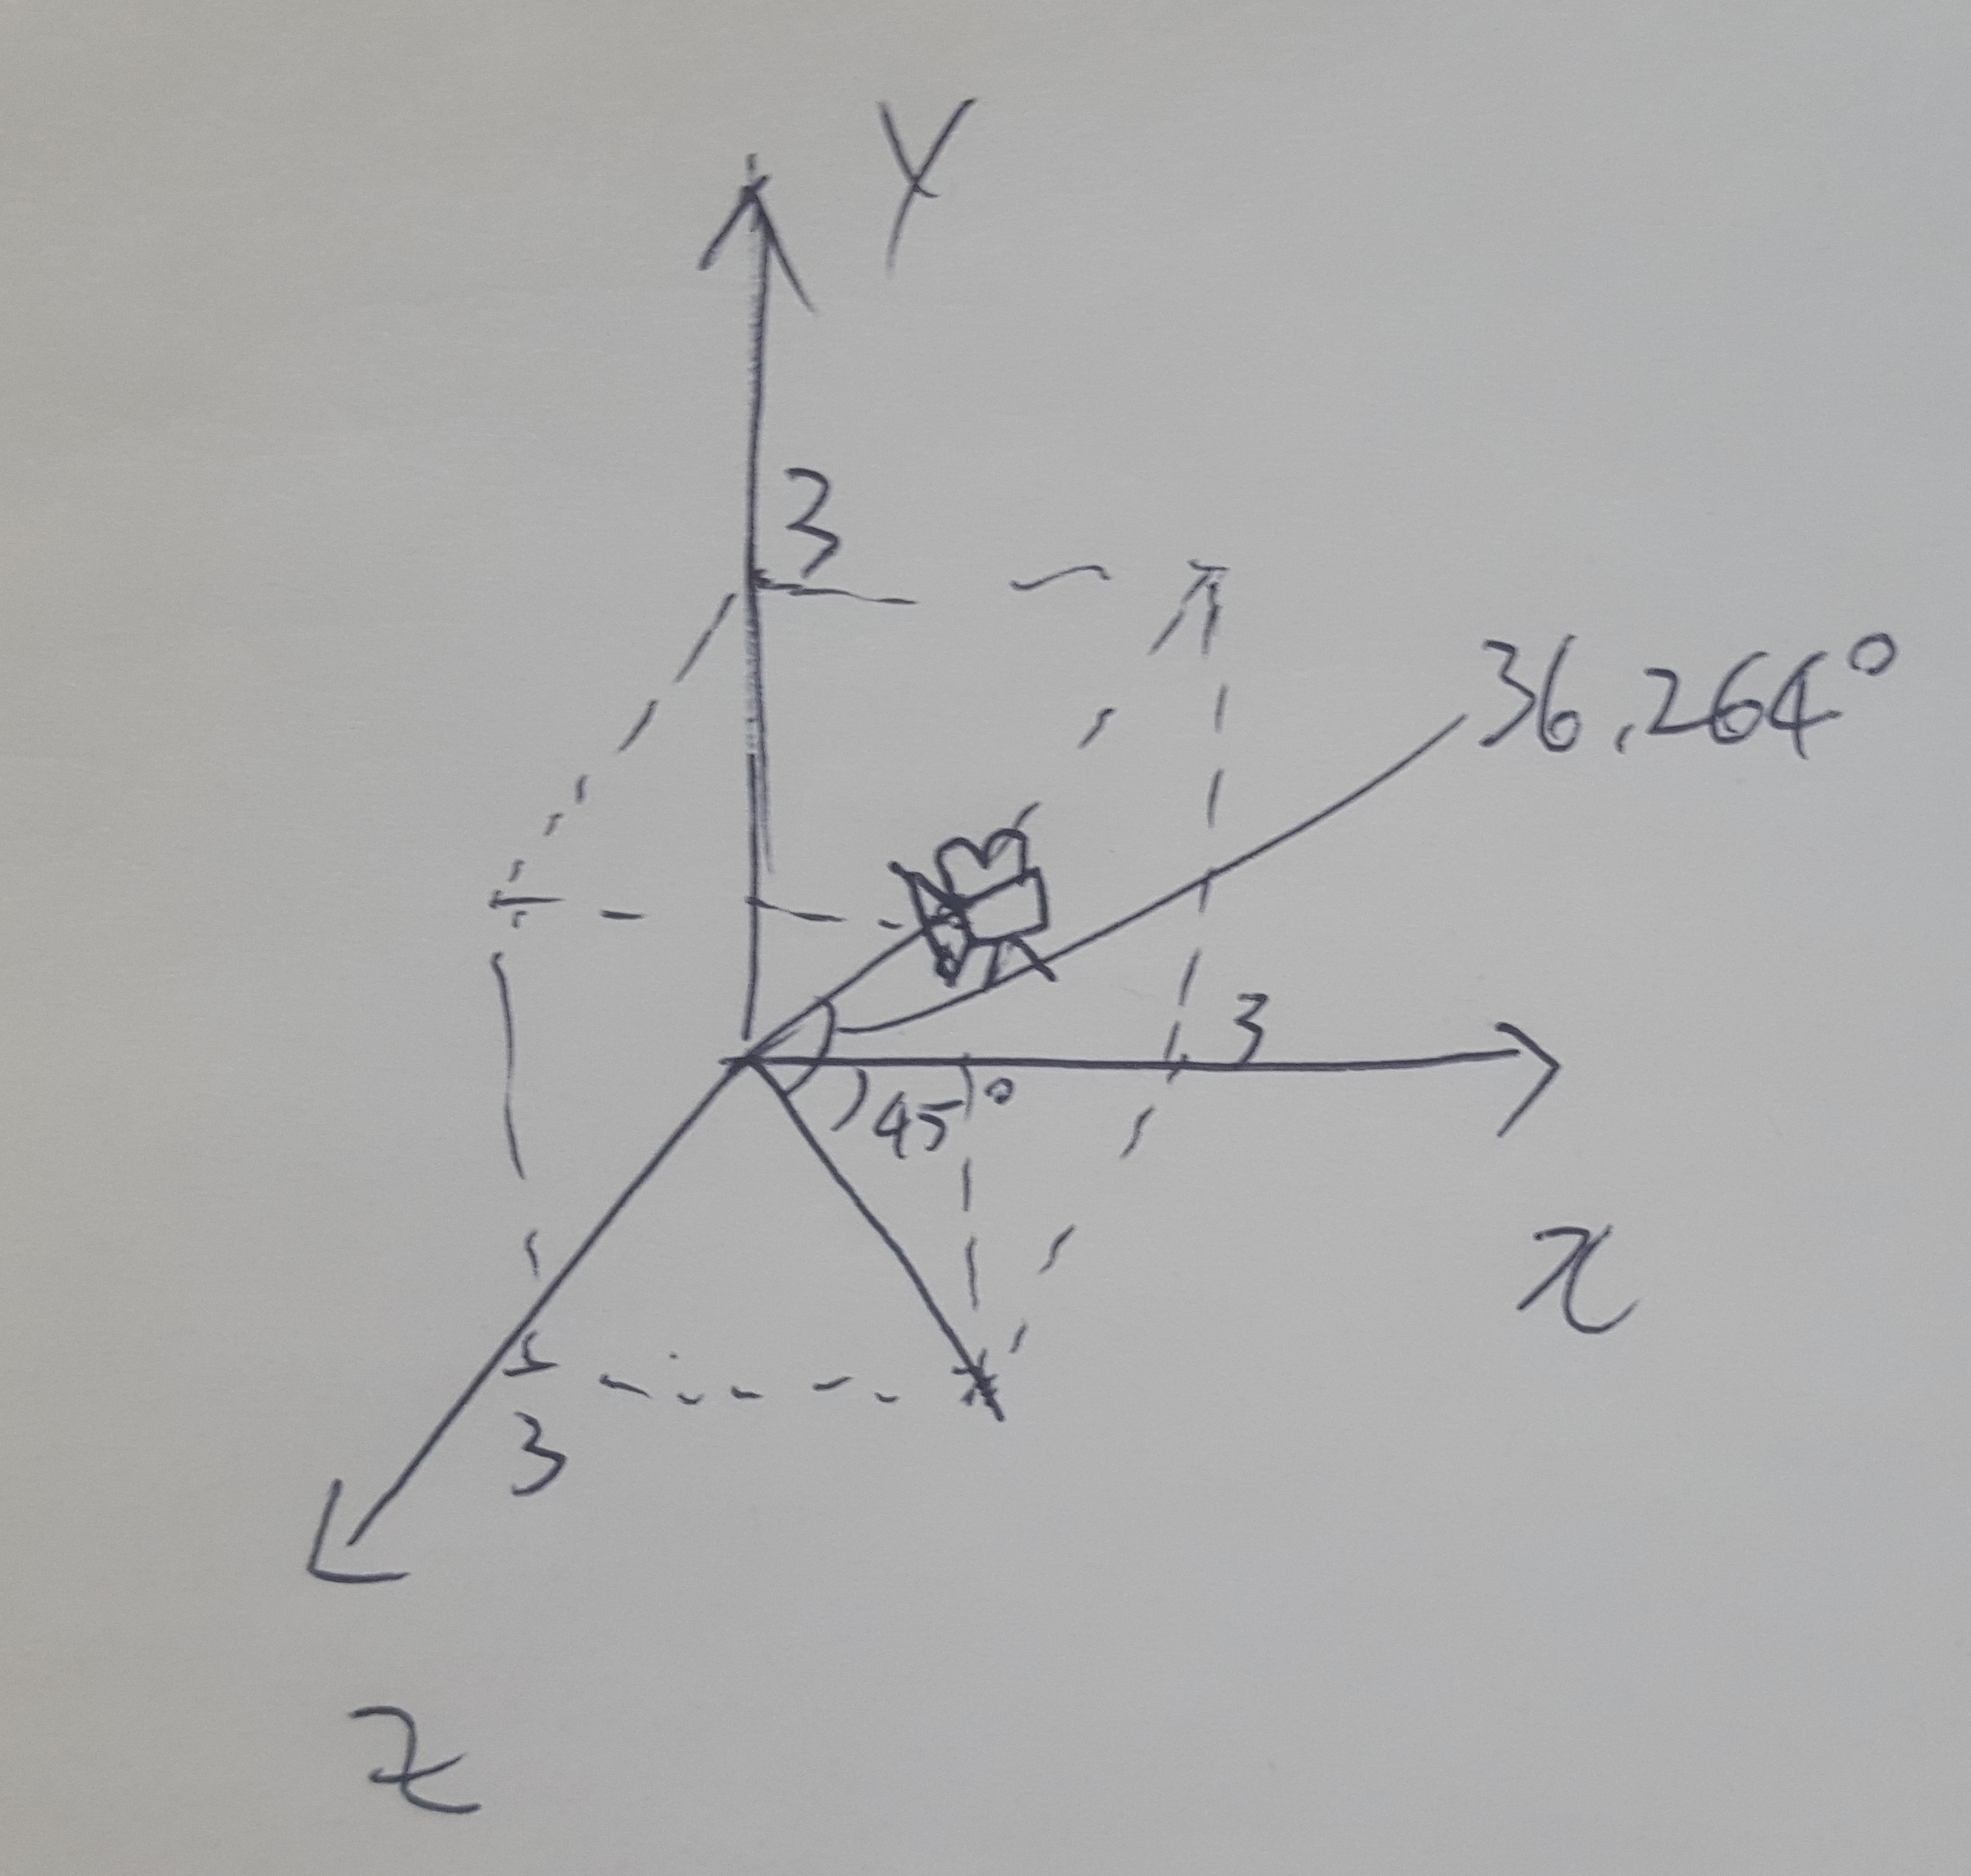 Y
3
36.264°
3
45°
x
3
z